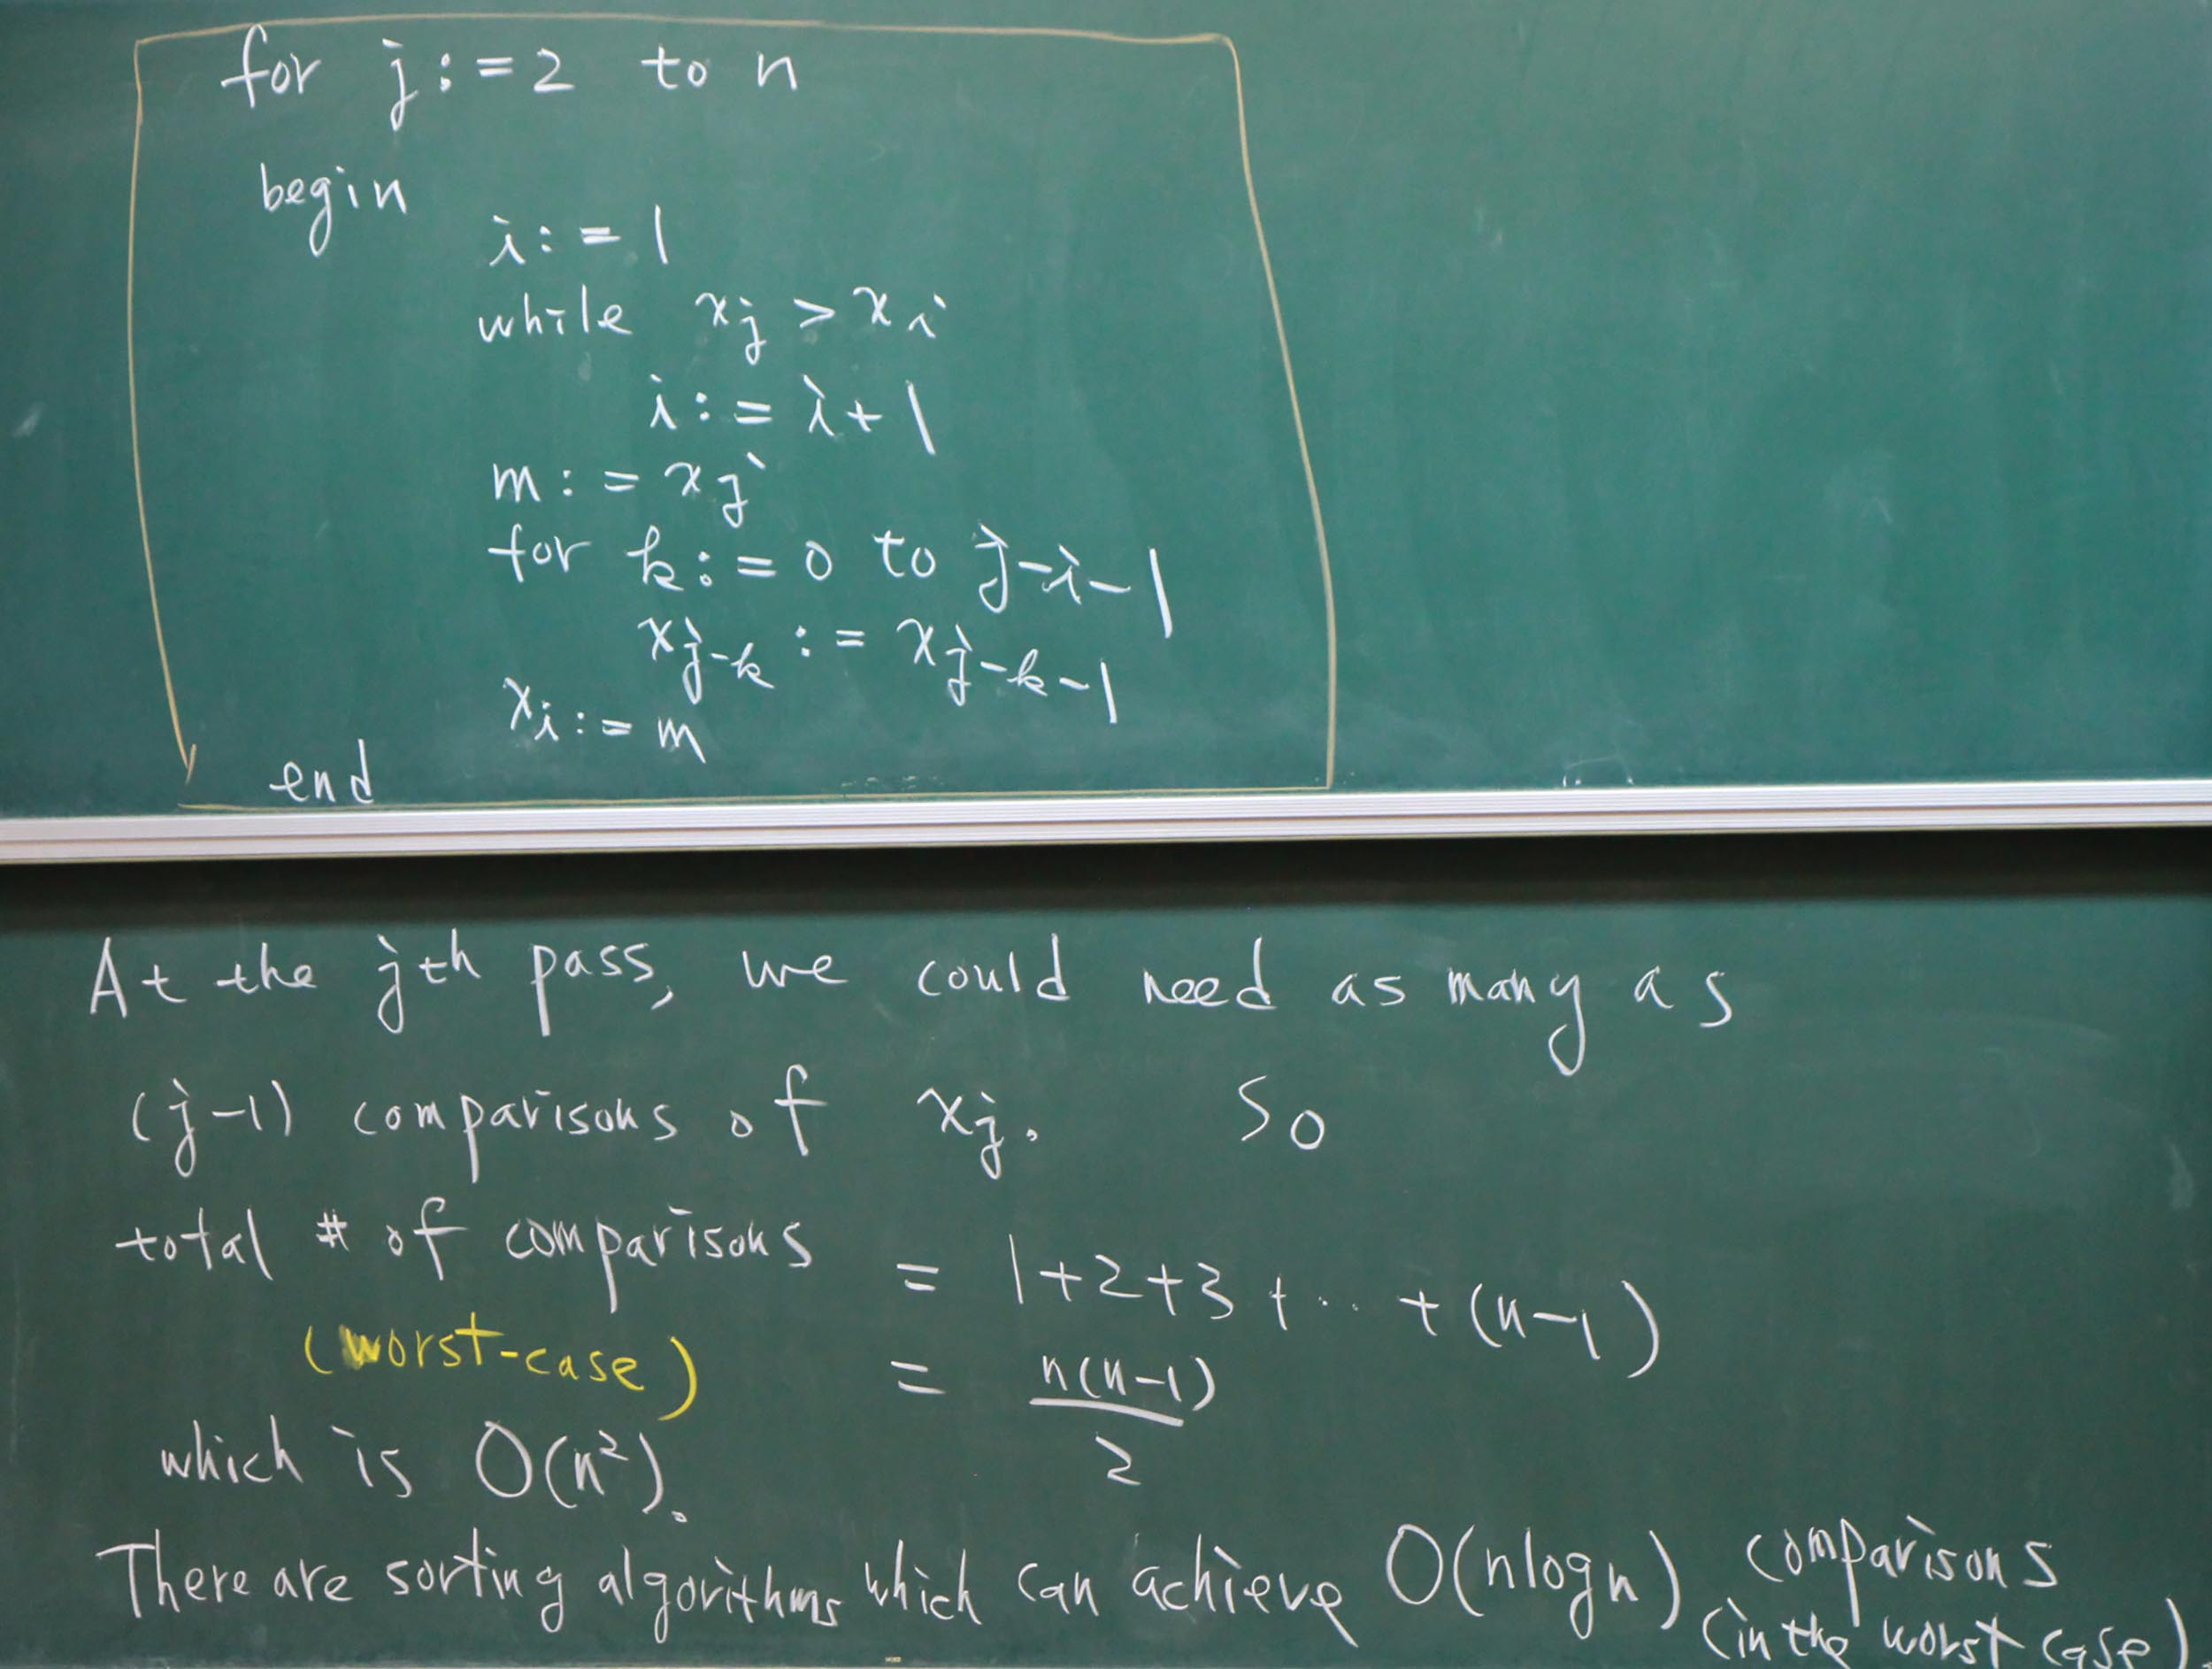 for j := 2 to n
begin
i := 1
while xj > xi
i := i + 1
m := xj
for k := 0 to j-i-1
xj-k := xj-k-1
xi := m
end
At the jth pass, we could need as many as
(j-1) comparisons of xj. So
total # of comparisons = 1+2+3+...+(n-1)
(worst-case) = n(n-1)/2
which is O(n²).
There are sorting algorithms which can achieve O(nlogn) comparisons
(in the worst case)